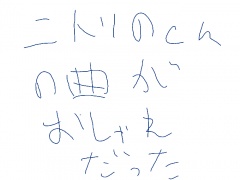 ニトリのとん
の曲が
おしゃれ
だった